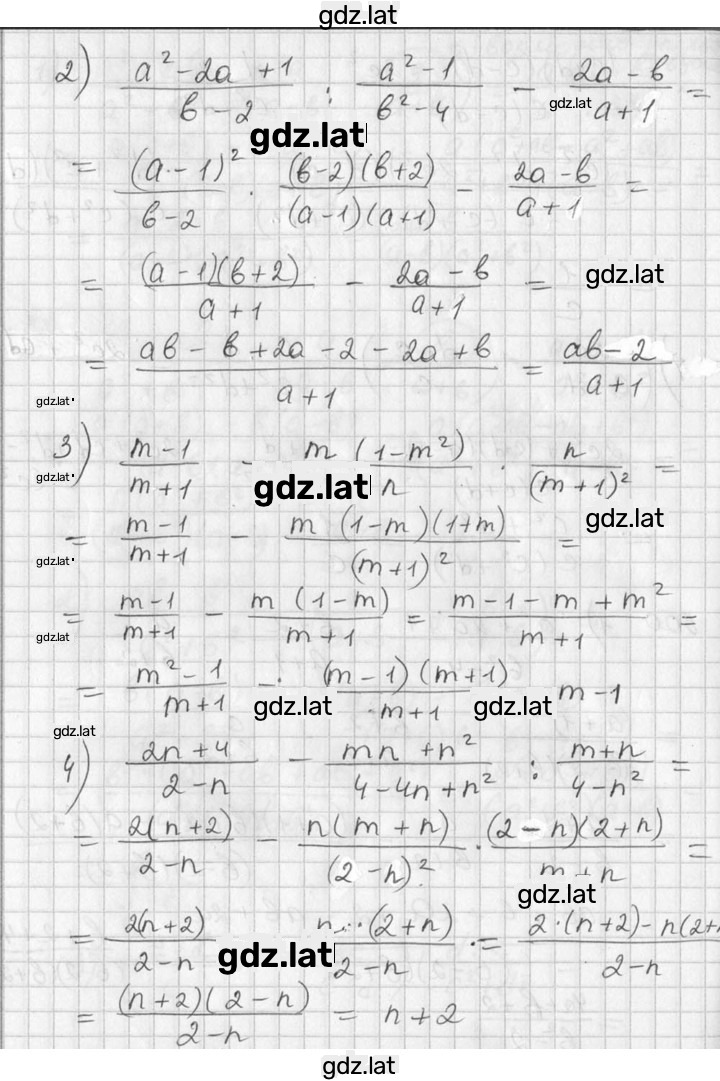 gdz.lat
2) (a² - 2a + 1)/(b - 2) : (a² - 1)/(b² - 4) - (2a - b)/(a + 1) =
gdz.lat
gdz.lat
= (a - 1)²/(b - 2) · (b - 2)(b + 2)/((a - 1)(a + 1)) - (2a - b)/(a + 1) =
= (a - 1)(b + 2)/(a + 1) - (2a - b)/(a + 1) =
gdz.lat
= (ab - b + 2a - 2 - 2a + b)/(a + 1) = (ab - 2)/(a + 1)
gdz.lat
3) (m - 1)/(m + 1) - m(1 - m²)/n · n/(m + 1)² =
gdz.lat
gdz.lat
= (m - 1)/(m + 1) - m(1 - m)(1 + m)/(m + 1)² =
gdz.lat
gdz.lat
= (m - 1)/(m + 1) - m(1 - m)/(m + 1) = (m - 1 - m + m²)/(m + 1) =
gdz.lat
= (m² - 1)/(m + 1) (m - 1)(m + 1)/(m + 1) m - 1
gdz.lat
gdz.lat
gdz.lat
4) (2n + 4)/(2 - n) - (mn + n²)/(4 - 4n + n²) : (m + n)/(4 - n²) =
= 2(n + 2)/(2 - n) - n(m + n)/(2 - n)² · (2 - n)(2 + n)/(m + n) =
gdz.lat
= 2(n + 2)/(2 - n) n·(2 + n)/(2 - n) = (2·(n + 2) - n(2+n)/(2 - n)
gdz.lat
= (n + 2)(2 - n)/(2 - n) = n + 2
gdz.lat